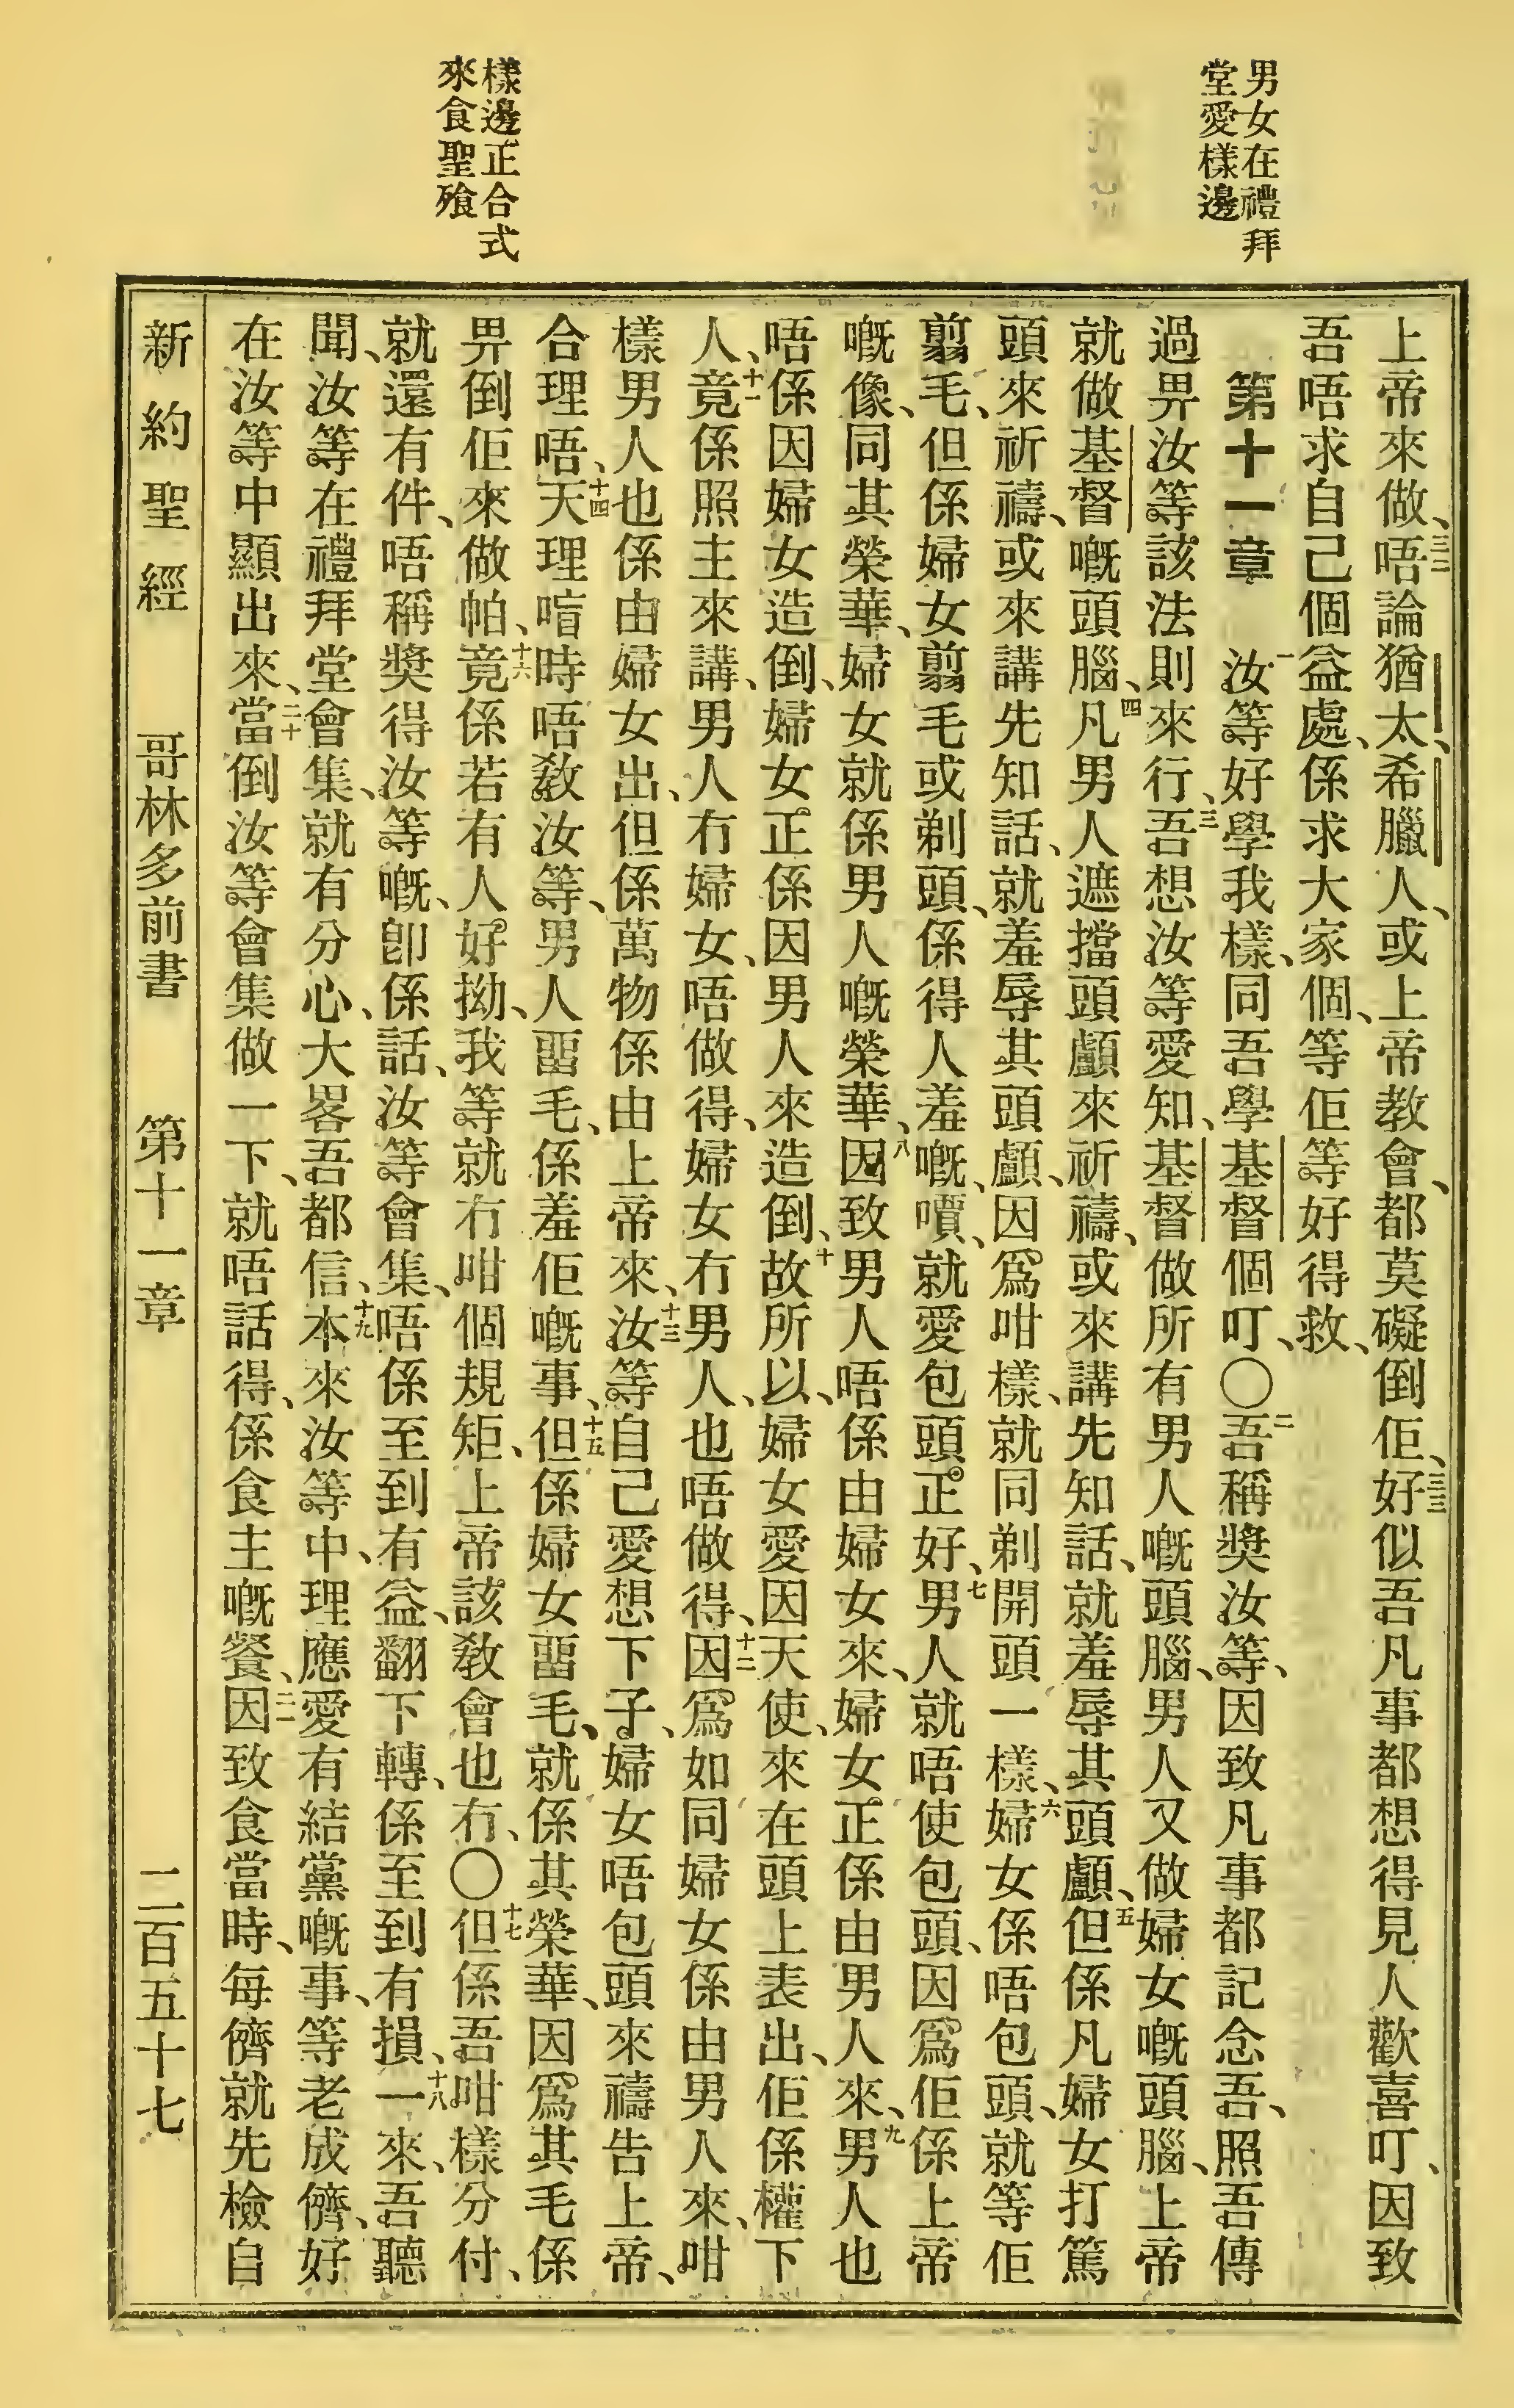 男女在禮拜
堂愛樣邊
樣邊正合式
來食聖飱
上帝來做、三二唔論猶太、希臘人、或上帝教會、都莫礙倒佢、三三好似吾凡事都想得見人歡喜叮、因致
吾唔求自己個益處、係求大家個、等佢等好得救、
第十一章 一汝等好學我樣、同吾學基督個叮、〇二吾稱獎汝等、因致凡事都記念吾、照吾傳
過畀汝等該法則來行、三吾想汝等愛知、基督做所有男人嘅頭腦、男人又做婦女嘅頭腦、上帝
就做基督嘅頭腦、四凡男人遮擋頭顱來祈禱、或來講先知話、就羞辱其頭顱、五但係凡婦女打篤
頭來祈禱、或來講先知話、就羞辱其頭顱、因爲咁樣、就同剃開頭一樣、六婦女係唔包頭、就等佢
翦毛、但係婦女翦毛或剃頭、係得人羞嘅、嘪、就愛包頭正好、七男人就唔使包頭、因爲佢係上帝
嘅像、同其榮華、婦女就係男人嘅榮華、八因致男人唔係由婦女來、婦女正係由男人來、九男人也
唔係因婦女造倒、婦女正係因男人來造倒、十故所以、婦女愛因天使、來在頭上表出、佢係權下
人、十一竟係照主來講、男人冇婦女、唔做得、婦女冇男人、也唔做得、十二因爲如同婦女係由男人來、咁
樣男人也係由婦女出、但係萬物係由上帝來、十三汝等自己愛想下子、婦女唔包頭來禱告上帝、
合理唔、十四天理喑時唔教汝等、男人畱毛、係羞佢嘅事、十五但係婦女畱毛、就係其榮華、因爲其毛係
畀倒佢來做帕、十六竟係若有人好拗、我等就冇咁個規矩、上帝該教會也冇、〇十七但係吾咁樣分付、
就還有件、唔稱獎得汝等嘅、卽係話、汝等會集、唔係至到有益、翻下轉、係至到有損、十八一來、吾聽
聞、汝等在禮拜堂會集、就有分心、大畧吾都信、十九本來汝等中、理應愛有結黨嘅事、等老成儕、好
在汝等中顯出來、二十當倒汝等會集做一下、就唔話得、係食主嘅餐、二一因致食當時、每儕就先檢自
新約聖經 哥林多前書 第十一章 二百五十七